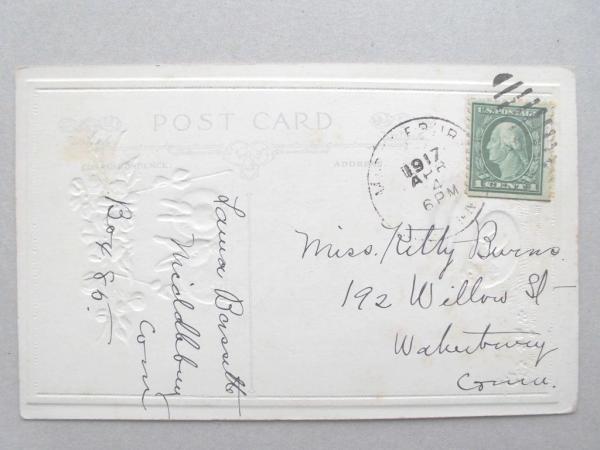 POST CARD
CORRESPONDENCE.
ADDRESS.
1917
APR
4
6 PM
U.S. POSTAGE
1 CENT 1
Laura Bassett
Middlebury
Conn
Box 86.
Miss. Kitty Burns.
192 Willow St
Waterbury
Conn.